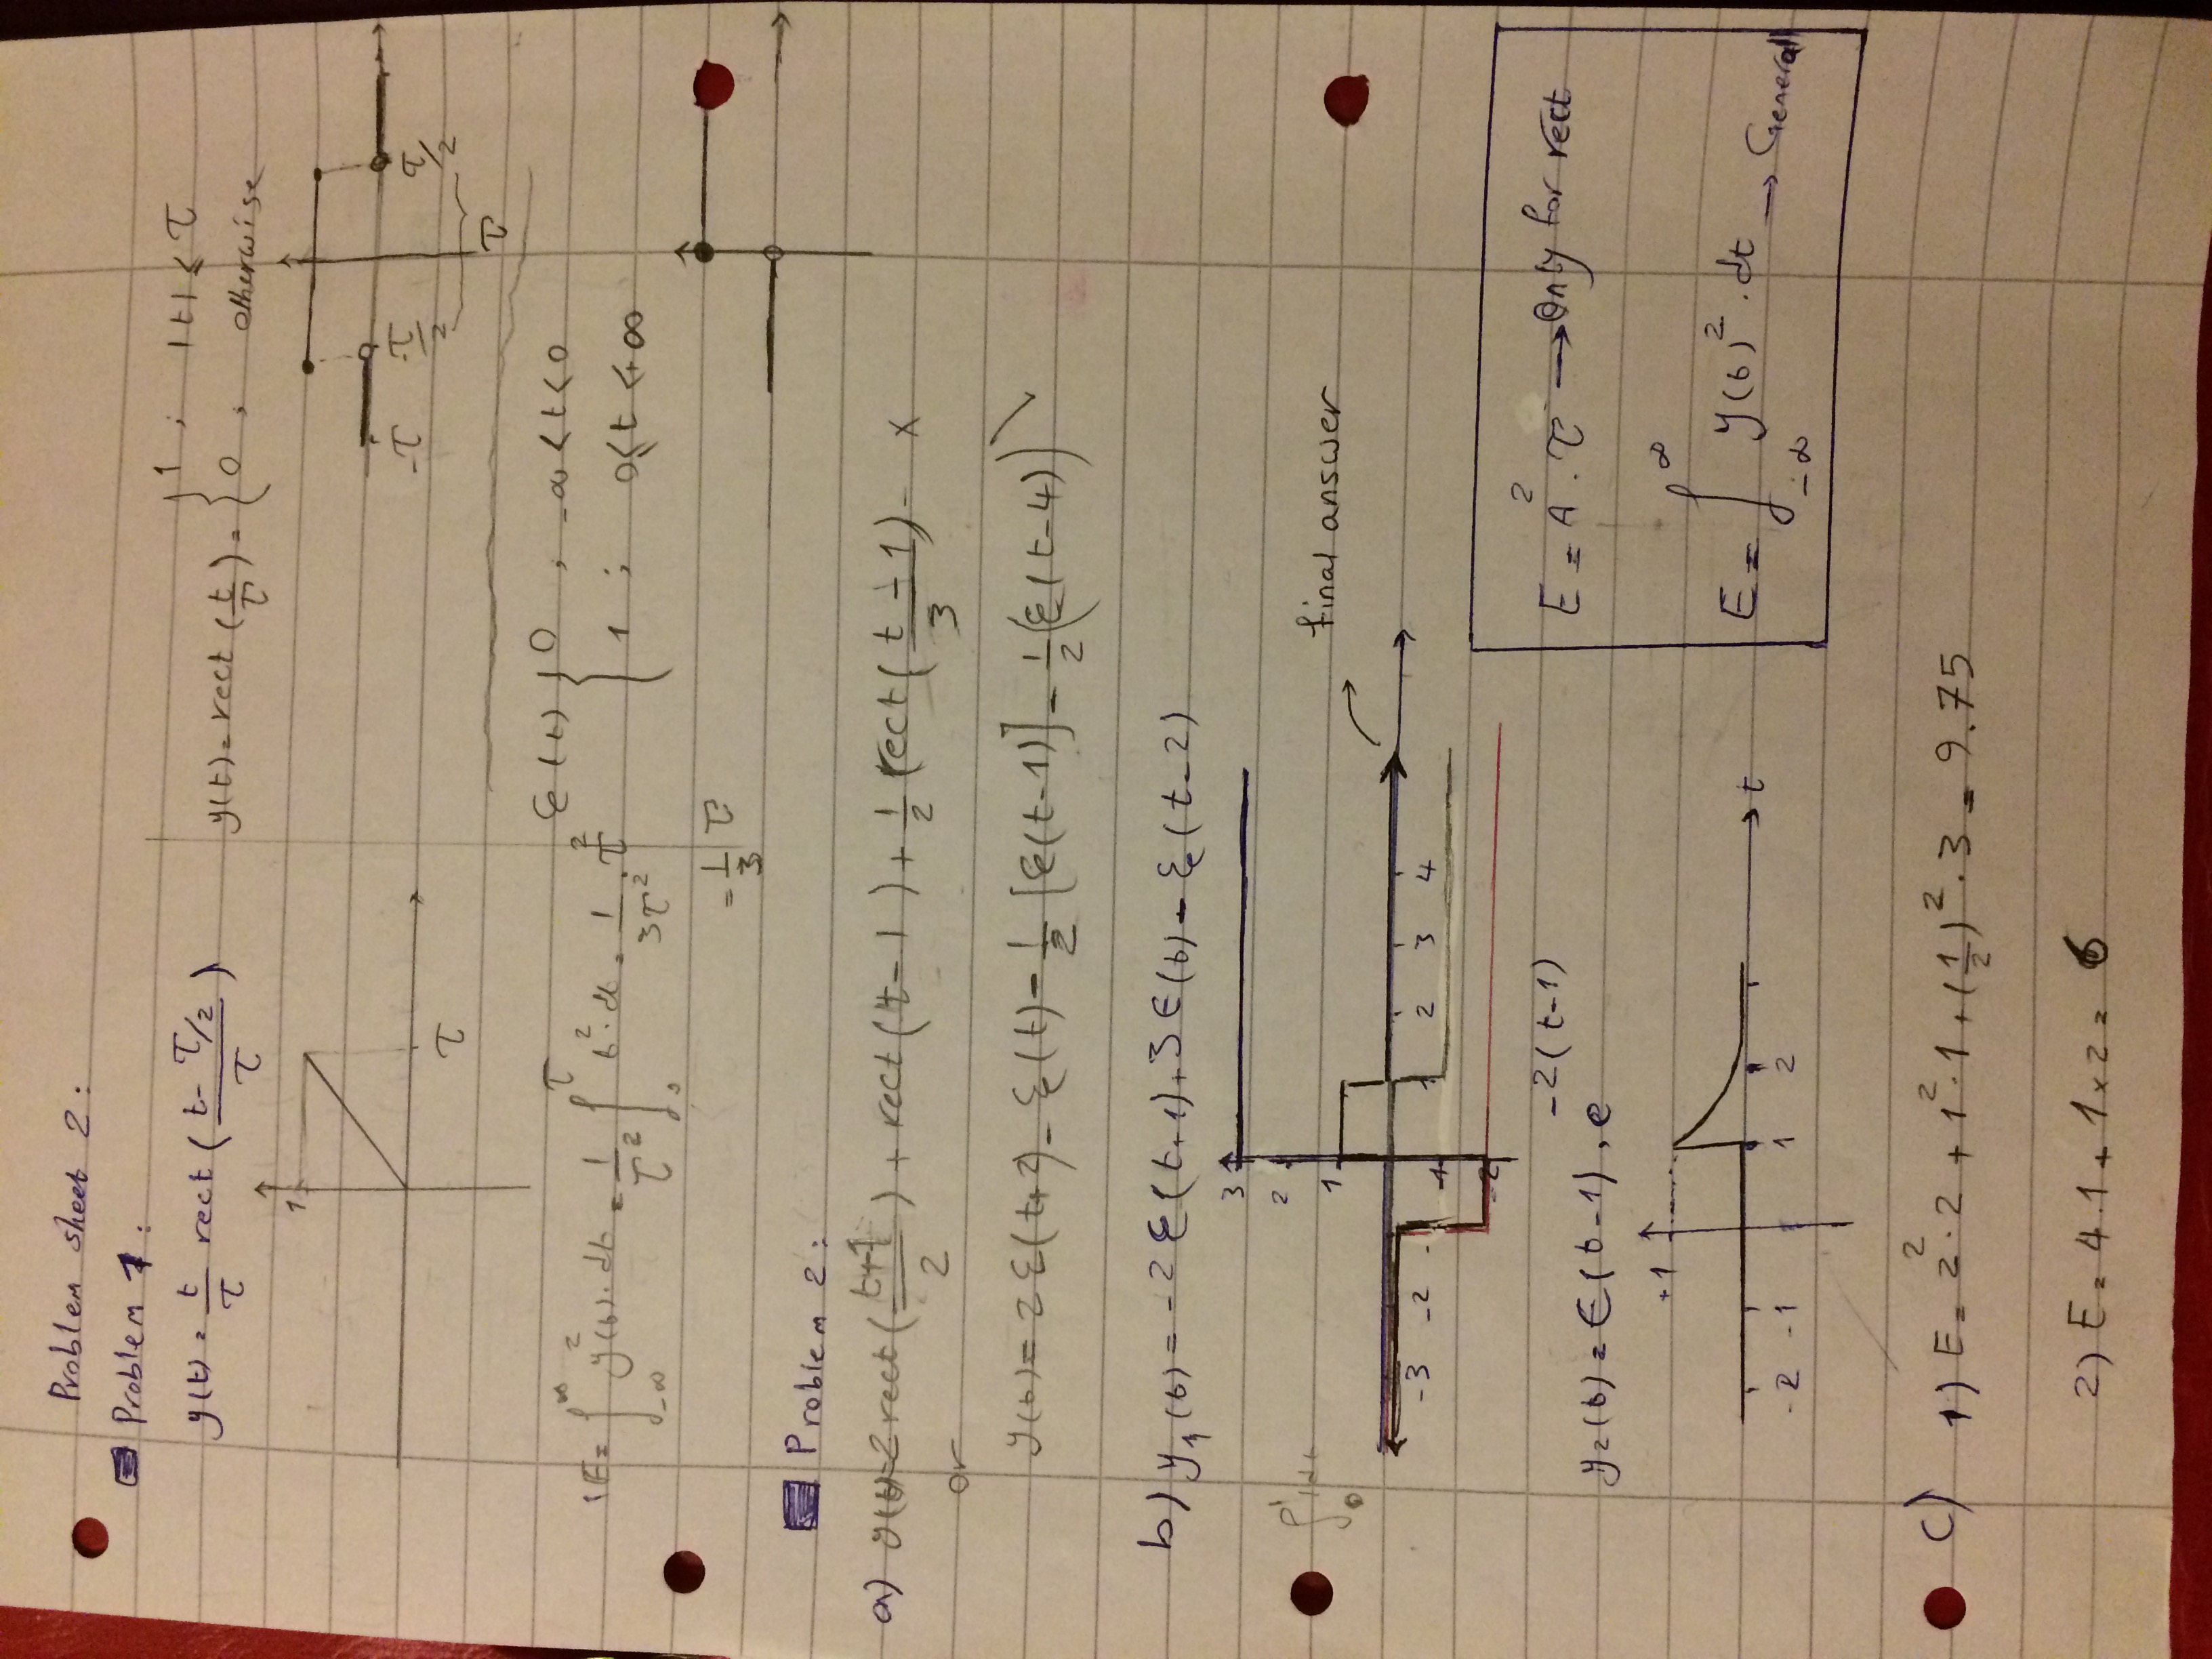 Problem sheet 2:
Problem 1:
y(t) = t/τ rect( (t - τ/2)/τ )
y(t) = rect(t/τ) = { 1 ; |t| ≤ τ
0 ; otherwise
1
τ
-τ -τ/2 τ/2
τ
E = ∫_{-∞}^{∞} y²(t)·dt = 1/τ² ∫_0^τ t²·dt = 1/(3τ²) · τ²
= 1/3 τ
ε(t) { 0 ; -∞ < t < 0
1 ; 0 ≤ t < +∞
Problem 2:
a) y(t) = 2 rect( (t+1)/2 ) + rect(t - 1) + 1/2 rect( (t - 1)/3 ) - x
or
y(t) = 2 ε(t+2) - ε(t) - 1/2 [ε(t-1)] - 1/2 (ε(t-4))
b) y₁(t) = -2 ε(t+1) + 3 ε(t) - ε(t-2)
3
2
1
final answer
-3 -2 - 1 2 3 4
-1
-2
y₂(t) = ε(t-1) . e^{-2(t-1)}
+1
t
-2 -1 1 2
E = A² . τ → Only for rect
E = ∫_{-∞}^{∞} y(t)² . dt → Generall
c) 1) E = 2²·2 + 1²·1 + (1/2)²·3 = 9.75
2) E = 4·1 + 1×2 = 6